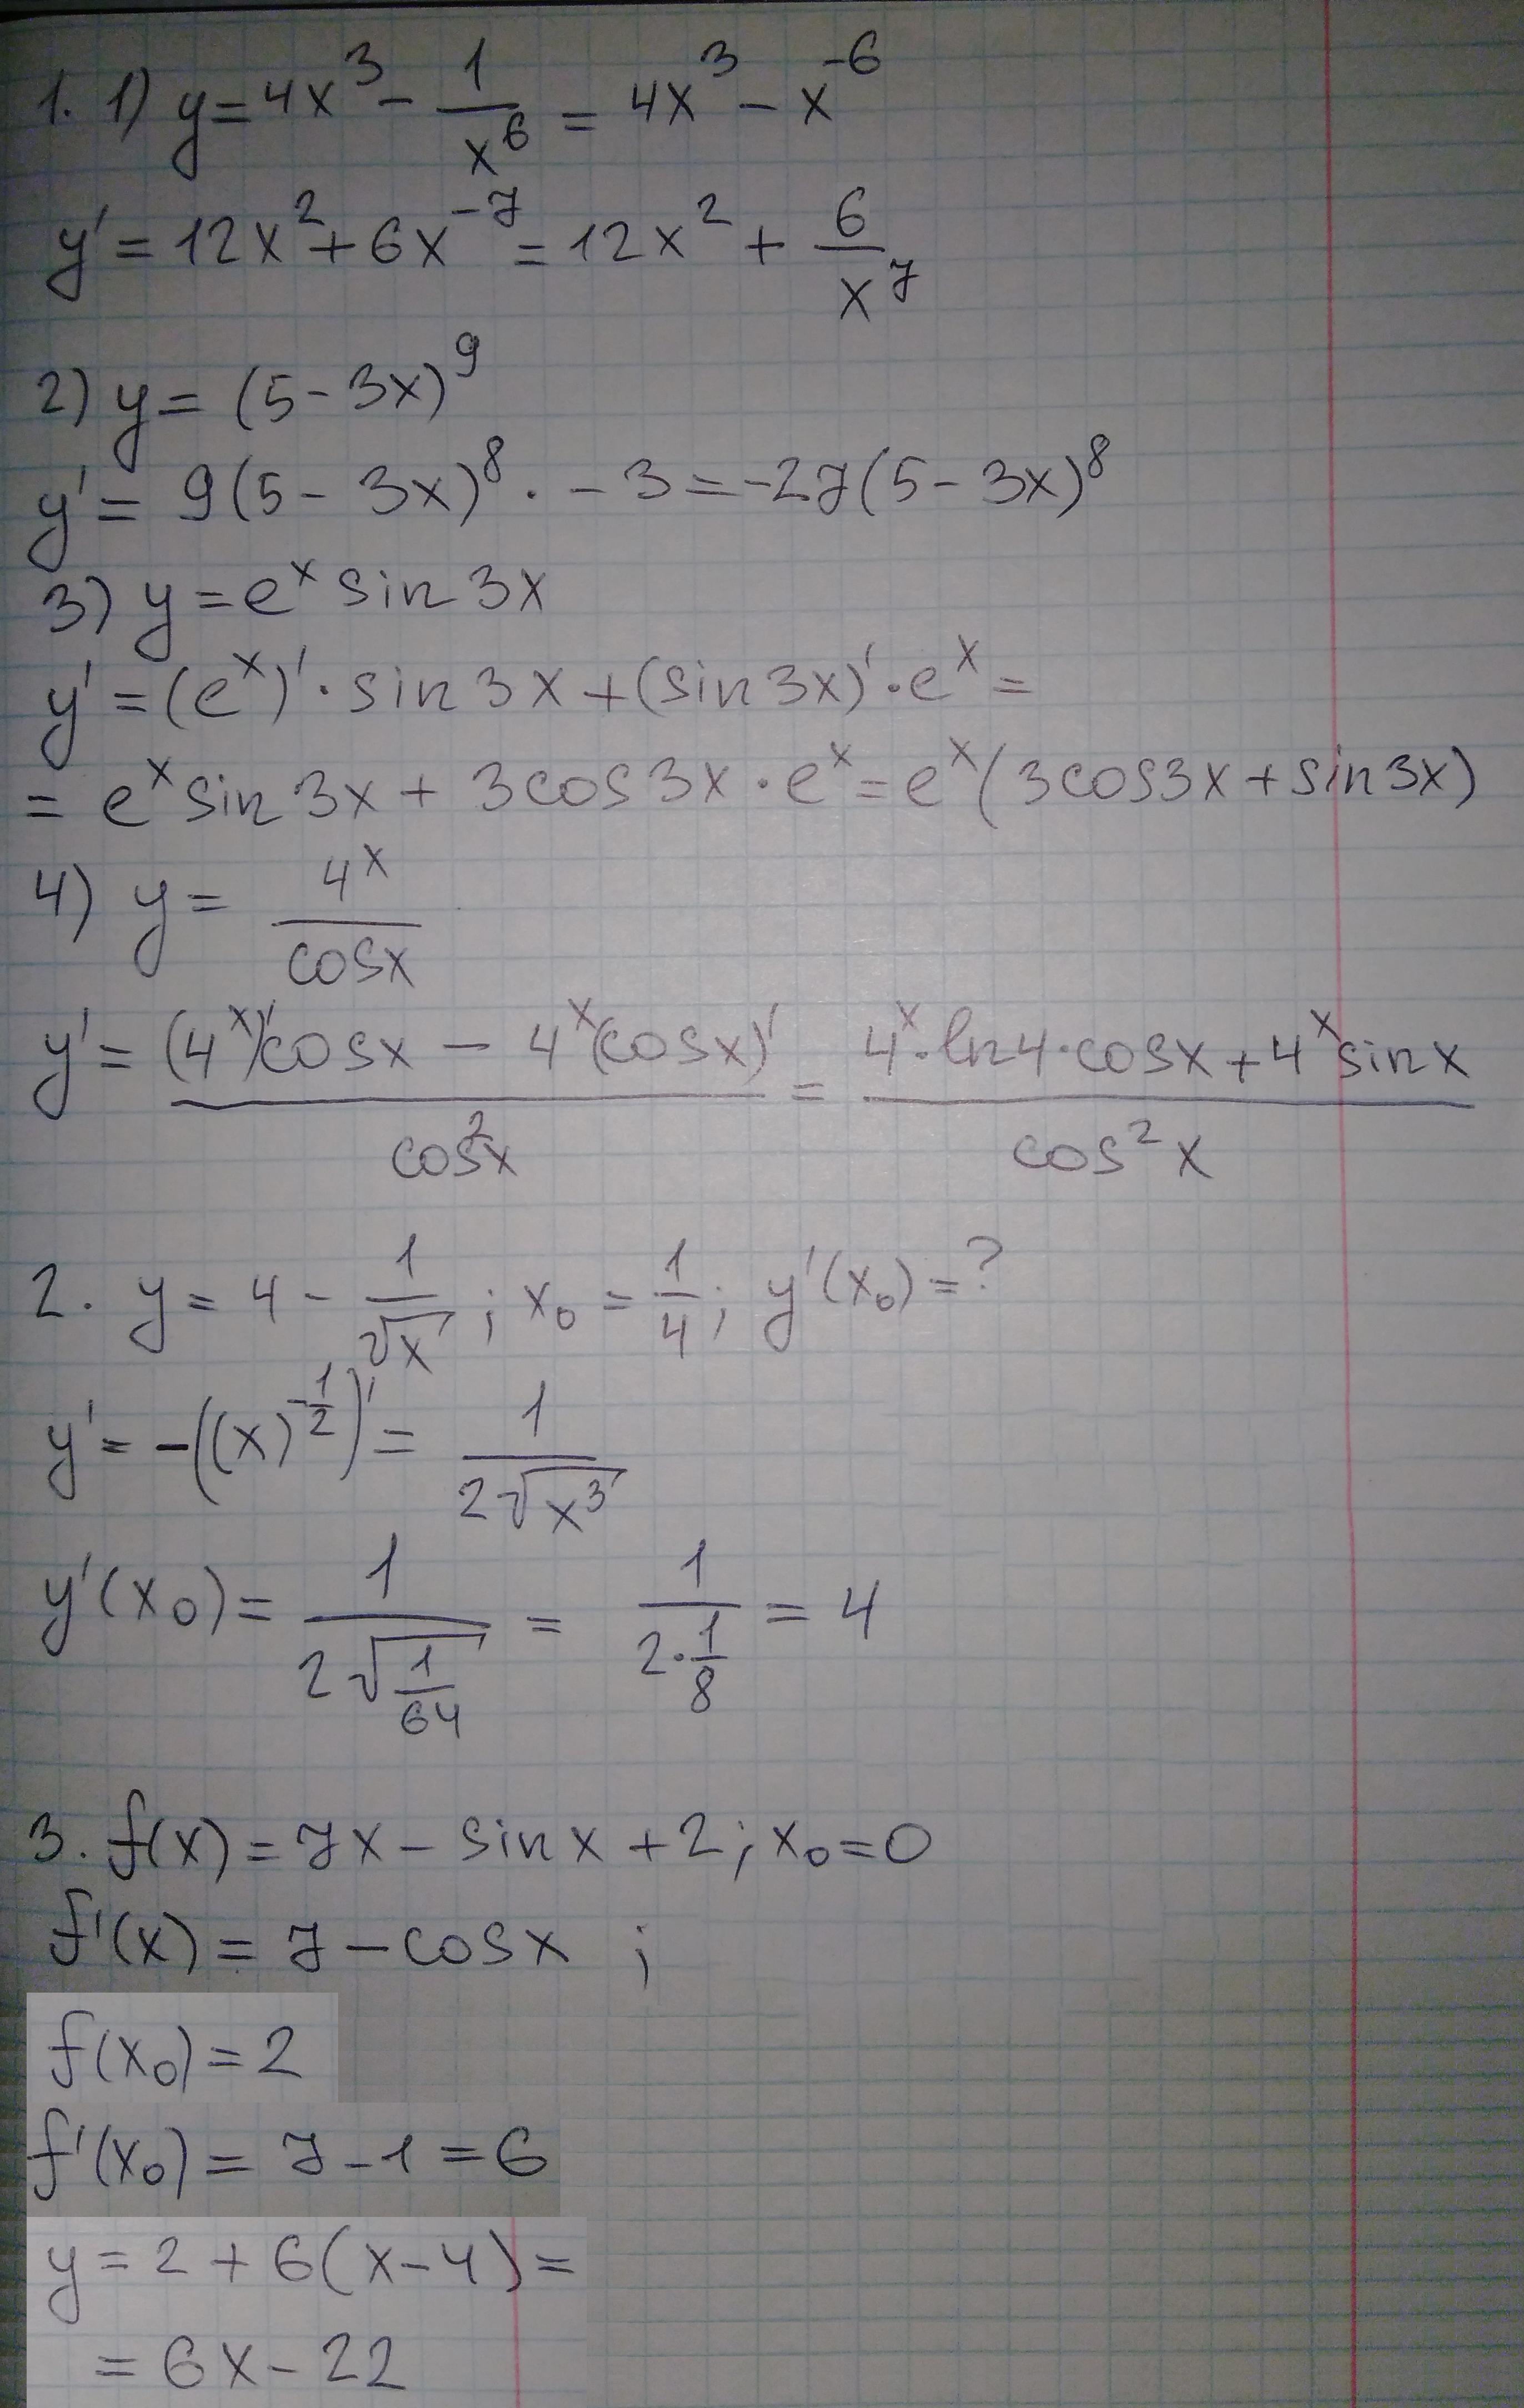 1. 1) y = 4x³ - 1/x⁶ = 4x³ - x⁻⁶
y' = 12x² + 6x⁻⁷ = 12x² + 6/x⁷
2) y = (5 - 3x)⁹
y' = 9(5 - 3x)⁸ · - 3 = -27(5 - 3x)⁸
3) y = eˣ sin 3x
y' = (eˣ)' · sin 3x + (sin 3x)' · eˣ =
= eˣ sin 3x + 3cos 3x · eˣ = eˣ(3cos3x + sin 3x)
4) y = 4ˣ/cosx
y' = ((4ˣ)'cosx - 4ˣ(cosx)')/cos²x = (4ˣ · ln4 · cosx + 4ˣ sinx)/cos²x
2. y = 4 - 1/√x ; x₀ = 1/4 ; y'(x₀) = ?
y' = -((x)^(-1/2))' = 1/(2√x³)
y'(x₀) = 1/(2√(1/64)) = 1/(2·1/8) = 4
3. f(x) = 7x - sinx + 2 ; x₀ = 0
f'(x) = 7 - cosx ;
f(x₀) = 2
f'(x₀) = 7 - 1 = 6
y = 2 + 6(x - 4) =
= 6x - 22